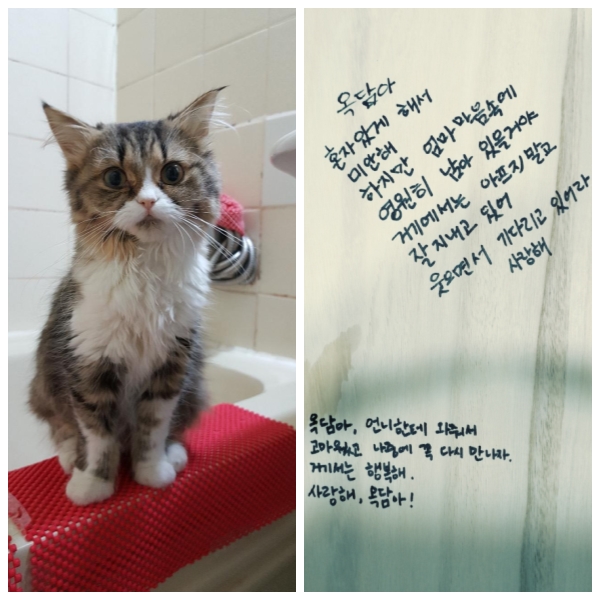 옥담아
혼자있게 해서
미안해
하지만 엄마 마음속에
영원히 남아 있을거야
거게에서는 아프지 말고
잘 지내고 있어
웃으면서 기다리고 있어라
사랑해
옥담아, 언니한테 와줘서
고마웠고 나중에 꼭 다시 만나자.
거기서는 행복해.
사랑해, 옥담아!